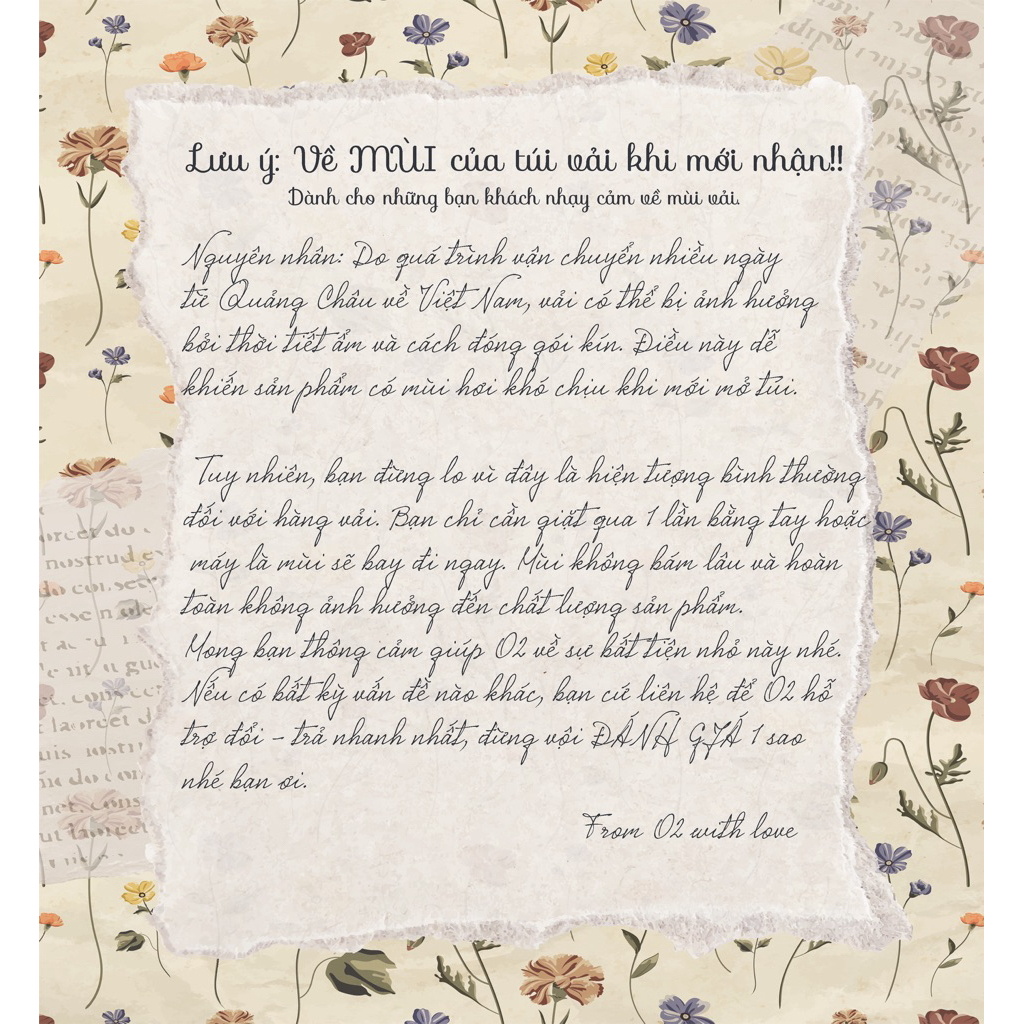 Lưu ý: Về MÙI của túi vải khi mới nhận!!
Dành cho những bạn khách nhạy cảm về mùi vải.
Nguyên nhân: Do quá trình vận chuyển nhiều ngày
từ Quảng Châu về Việt Nam, vải có thể bị ảnh hưởng
bởi thời tiết ẩm và cách đóng gói kín. Điều này dễ
khiến sản phẩm có mùi hơi khó chịu khi mới mở túi.
Tuy nhiên, bạn đừng lo vì đây là hiện tượng bình thường
đối với hàng vải. Bạn chỉ cần giặt qua 1 lần bằng tay hoặc
máy là mùi sẽ bay đi ngay. Mùi không bám lâu và hoàn
toàn không ảnh hưởng đến chất lượng sản phẩm.
Mong bạn thông cảm giúp O2 về sự bất tiện nhỏ này nhé.
Nếu có bất kỳ vấn đề nào khác, bạn cứ liên hệ để O2 hỗ
trợ đổi – trả nhanh nhất, đừng vội ĐÁNH GIÁ 1 sao
nhé bạn ơi.
From O2 with love